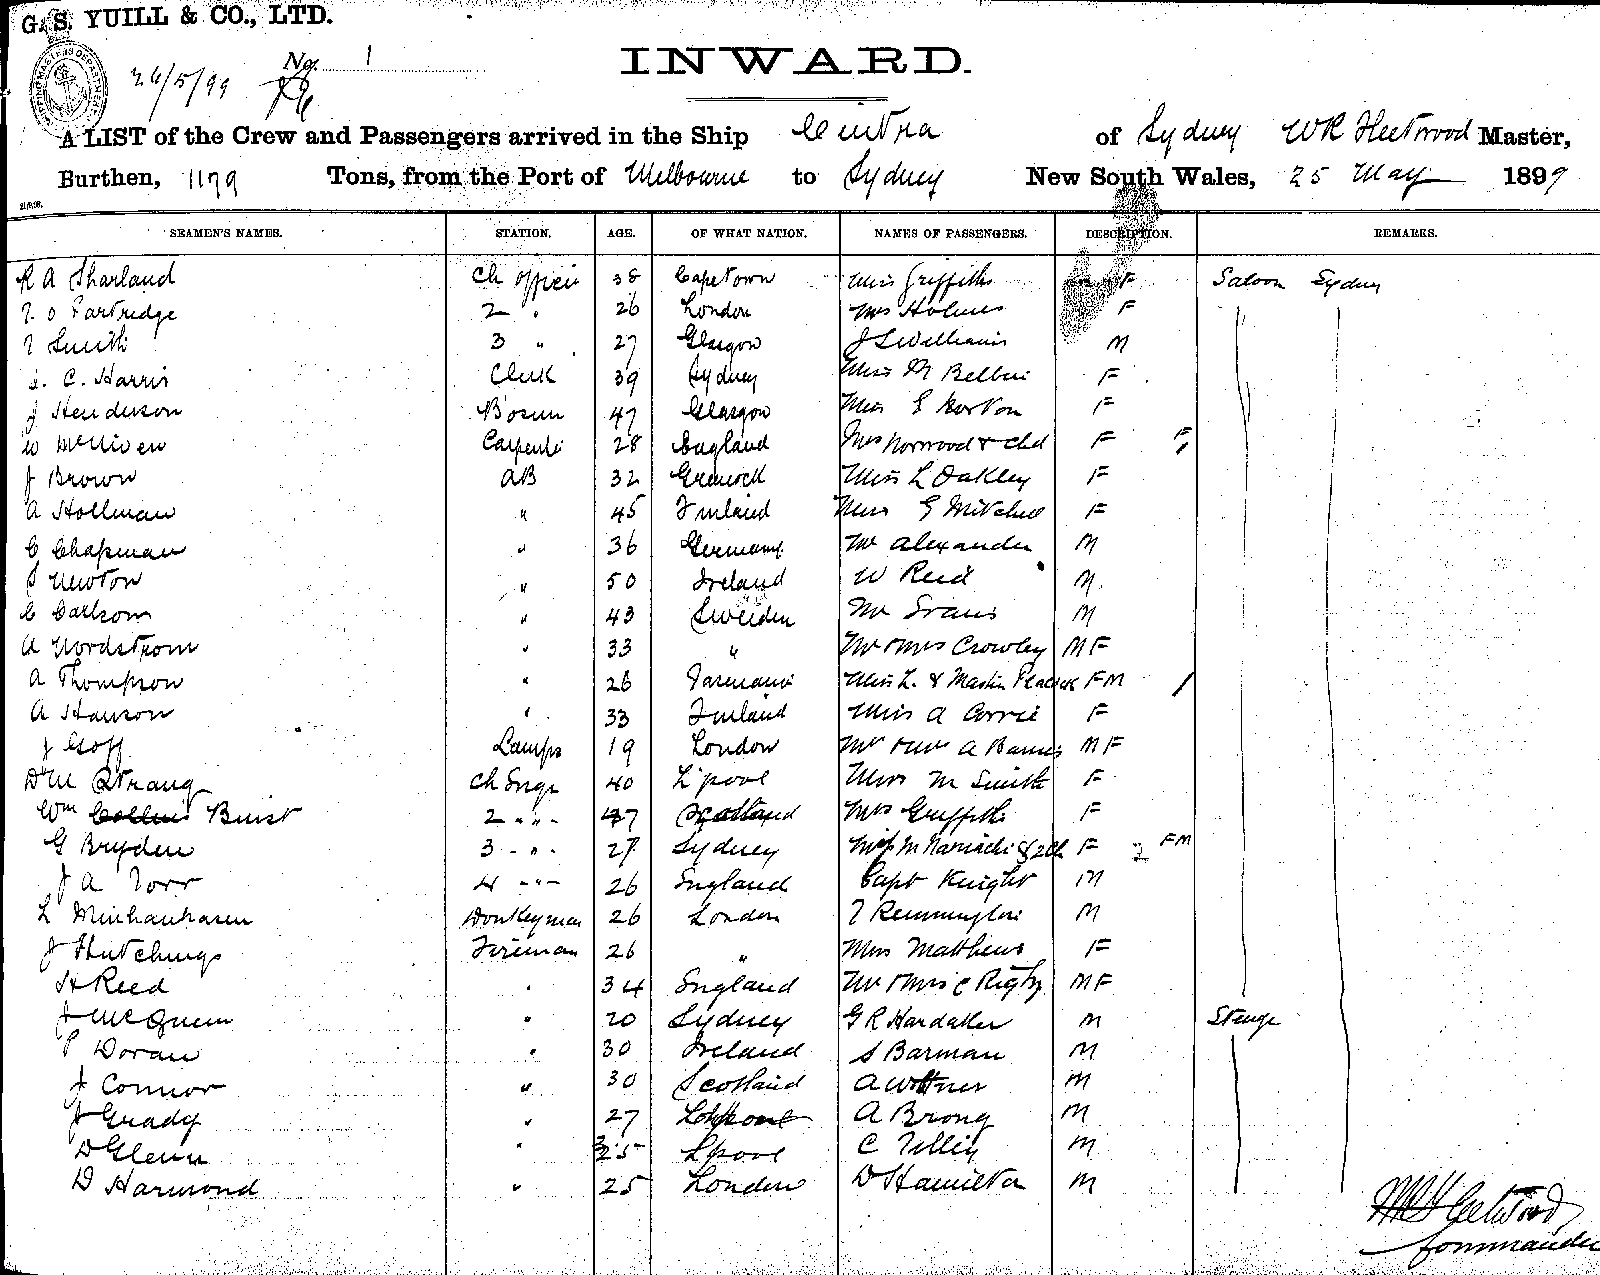 G. S. YUILL & CO., LTD.
26/5/99 No. 1
INWARD.
A LIST of the Crew and Passengers arrived in the Ship Cintra of Sydney W R Fleetwood Master,
Burthen, 1179 Tons, from the Port of Melbourne to Sydney New South Wales, 25 May 1899
SEAMEN'S NAMES. STATION. AGE. OF WHAT NATION. NAMES OF PASSENGERS. DESCRIPTION. REMARKS.
R A Sharland Ch officer 38 Capetown Miss Griffiths F Saloon Sydney
O Partridge 2 " 26 London Mrs Holmes F
Smith 3 " 27 Glasgow J S Williams M
C. Harris Clerk 39 Sydney Miss M F
J Henderson Bosun 47 Glasgow Miss E Horton F
W McNiven Carpenter 28 England Mrs Norwood & chd F F 1
J Brown AB 32 Greenock Miss L Oakley F
A Hollman " 45 Finland Miss G Mitchell F
C Chapman " 36 Germany Mr Alexander M
Newton " 50 Ireland W Reid M
C Carlson " 43 Sweden Mr Evans M
A Nordstrom " 33 " Mr & Mrs Crowley M F
A Thompson " 26 Tasmania Miss L. & Master F M 1
A Hanson " 33 Finland Miss A Corrie F
J Goff Lamps 19 London Mr & Mrs A Barnes M F
D M Strang Ch Engr 40 L'pool Miss M Smith F
Wm Collins Buist 2 " " 37 Scotland Mrs Griffiths F
G Bryden 3 " " 27 Sydney Miss M & 2 Ch F 2 F M
J A Torr 4 " " 26 England Capt Knight M
L Donkeyman 26 London Remmington M
J Hutchings Fireman 26 " Miss Matthews F
H Reed " 34 England Mr & Mrs C Rigby M F
J McQueen " 20 Sydney G R Hardaker M Steerge
P Doran " 30 Ireland S Barman M
J Connor " 30 Scotland A M
J Grady " 27 A Brong M
D Glenn " 35 Lpool C Tilley M
D Harmond " 25 London D Hamilton M
W R Fleetwood
Commander